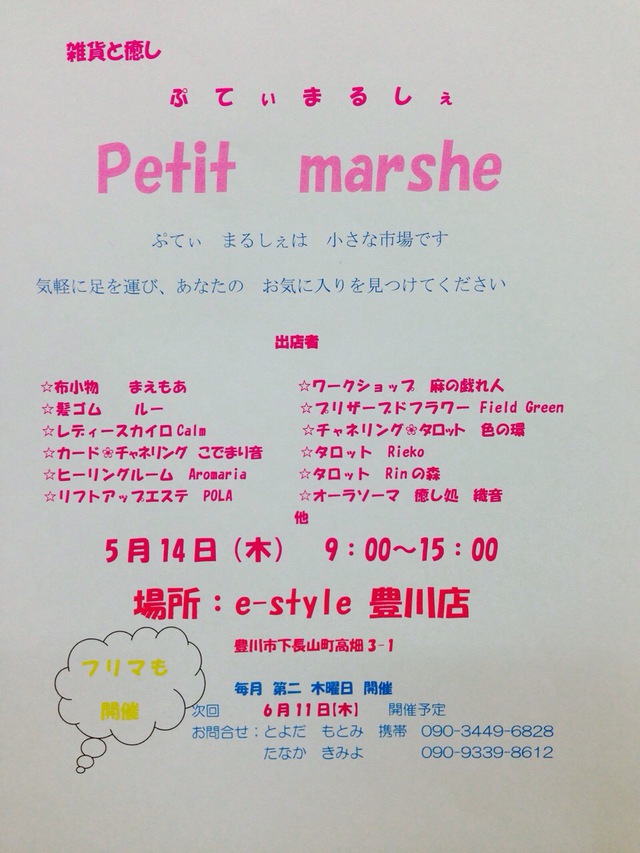 雑貨と癒し
ぷてぃまるしぇ
Petit marshe
ぷてぃ まるしぇは 小さな市場です
気軽に足を運び、あなたの お気に入りを見つけてください
出店者
☆布小物 まえもあ
☆髪ゴム ルー
☆レディースカイロCalm
☆カード❀チャネリング こでまり音
☆ヒーリングルーム Aromaria
☆リフトアップエステ POLA
☆ワークショップ 麻の戯れ人
☆プリザーブドフラワー Field Green
☆チャネリング❀タロット 色の環
☆タロット Rieko
☆タロット Rinの森
☆オーラソーマ 癒し処 織音
他
5月14日(木) 9:00~15:00
場所:e-style 豊川店
豊川市下長山町高畑3-1
フリマも
開催
毎月 第二 木曜日 開催
次回 6月11日(木) 開催予定
お問合せ:とよだ もとみ 携帯 090-3449-6828
たなか きみよ 090-9339-8612